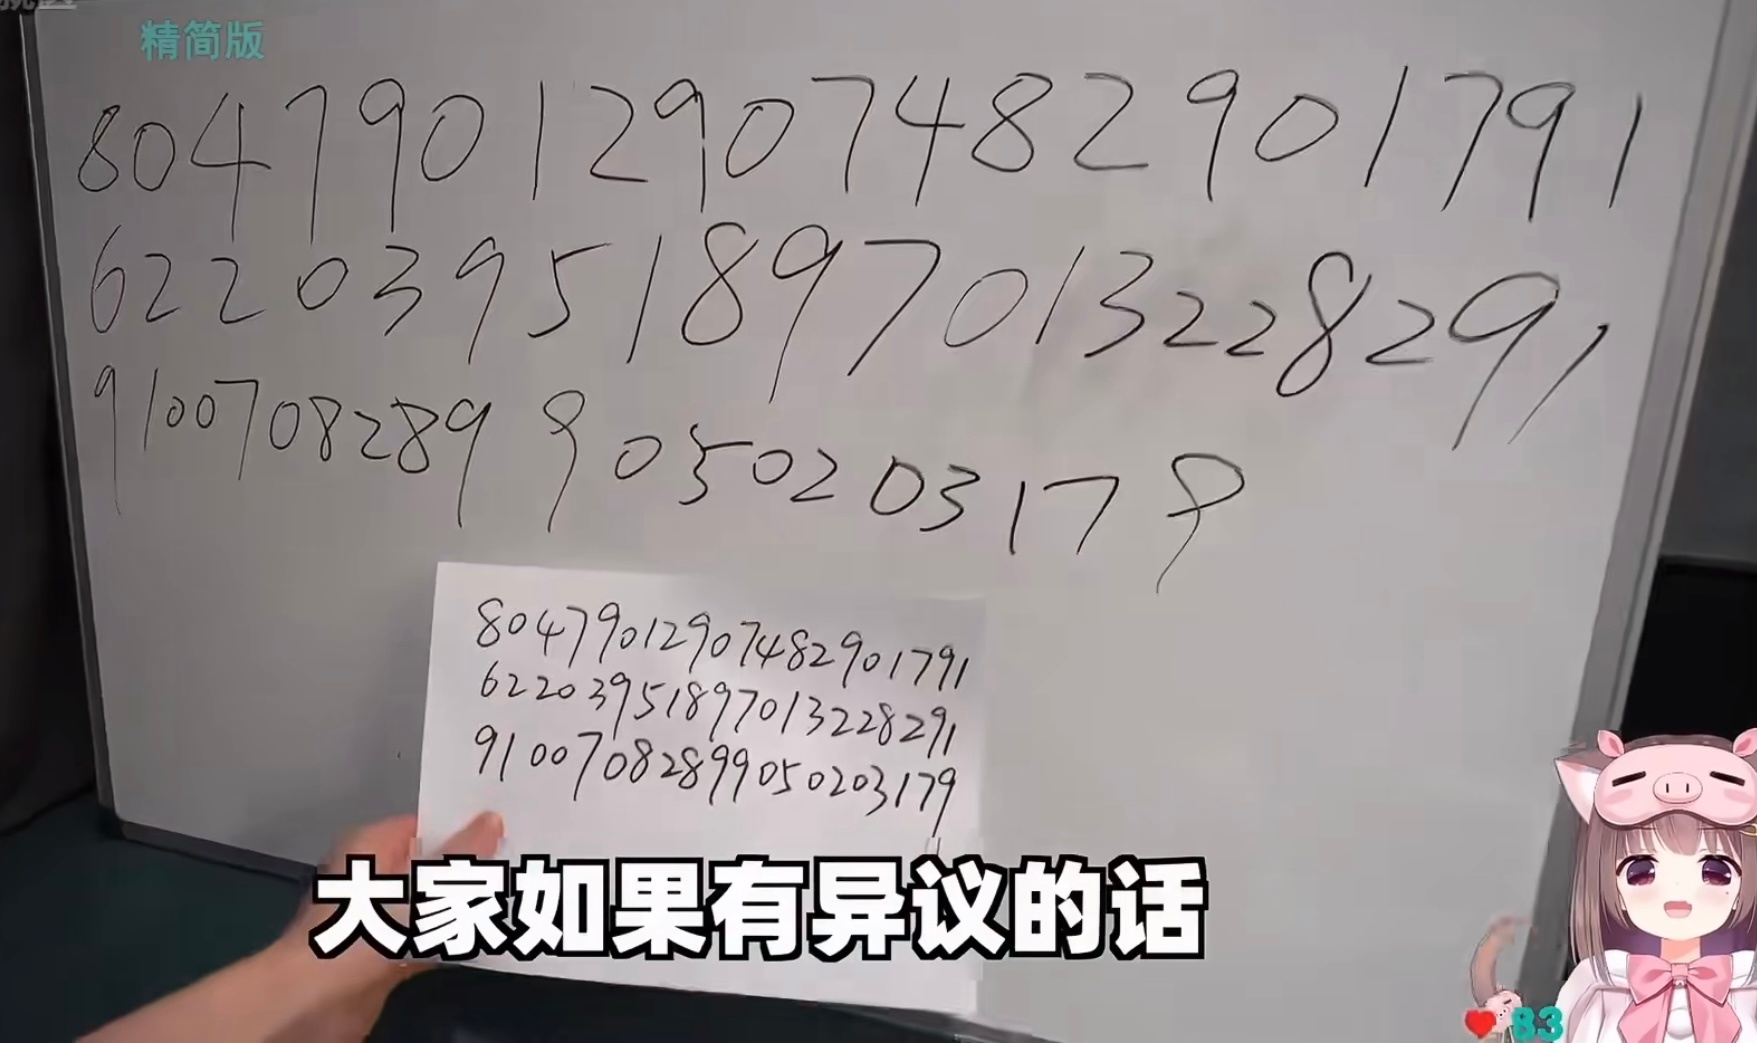 精简版
80479012907482901791
62203951897013228291
91007082899050203179
80479012907482901791
62203951897013228291
91007082899050203179
大家如果有异议的话
83